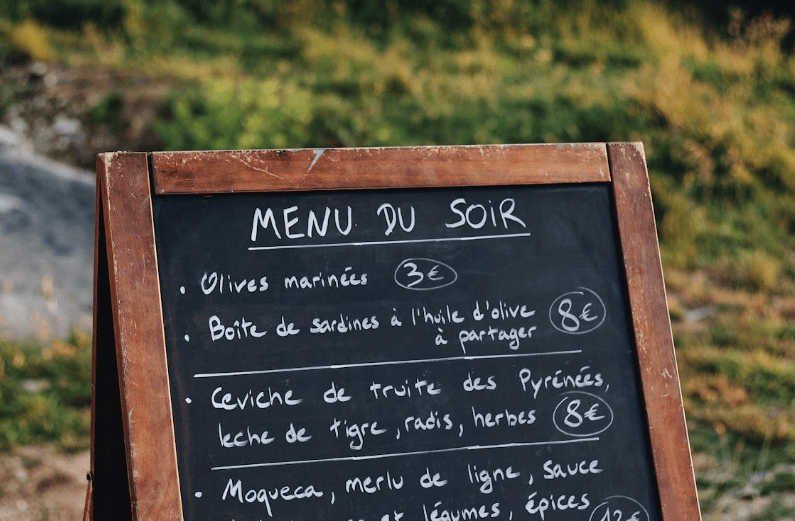 MENU DU SOIR
• Olives marinées 3€
• Boîte de sardines à l'huile d'olive 8€
à partager
• Ceviche de truite des Pyrénées,
leche de tigre, radis, herbes 8€
• Moqueca, merlu de ligne, sauce
et légumes, épices